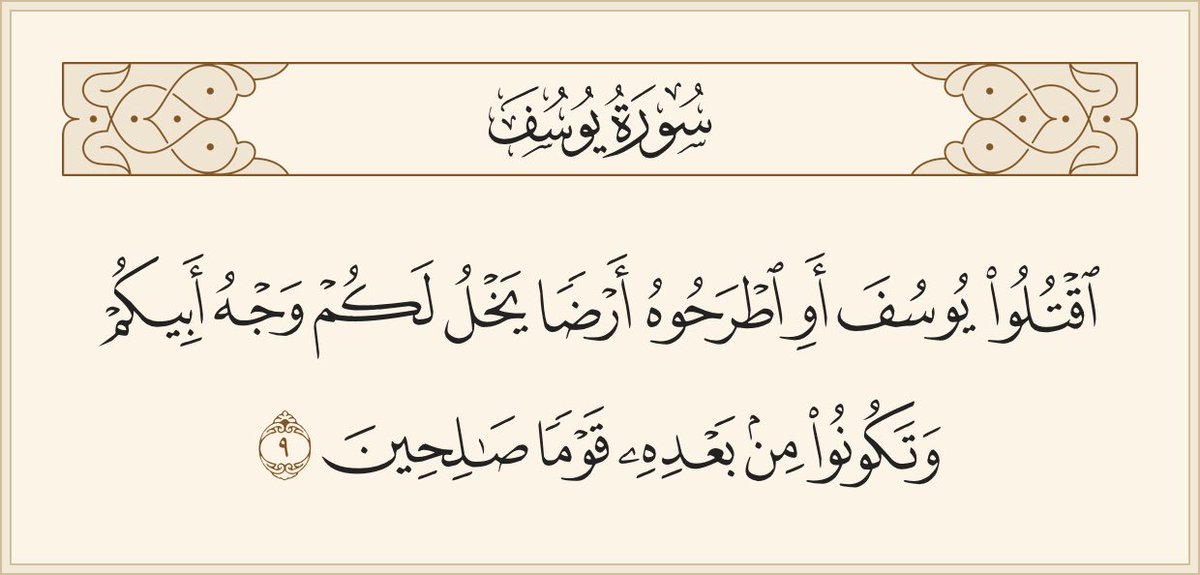 سُورَةُ يُوسُفَ
ٱقْتُلُوا۟ يُوسُفَ أَوِ ٱطْرَحُوهُ أَرْضًا يَخْلُ لَكُمْ وَجْهُ أَبِيكُمْ
وَتَكُونُوا۟ مِنۢ بَعْدِهِۦ قَوْمًا صَـٰلِحِينَ ٩